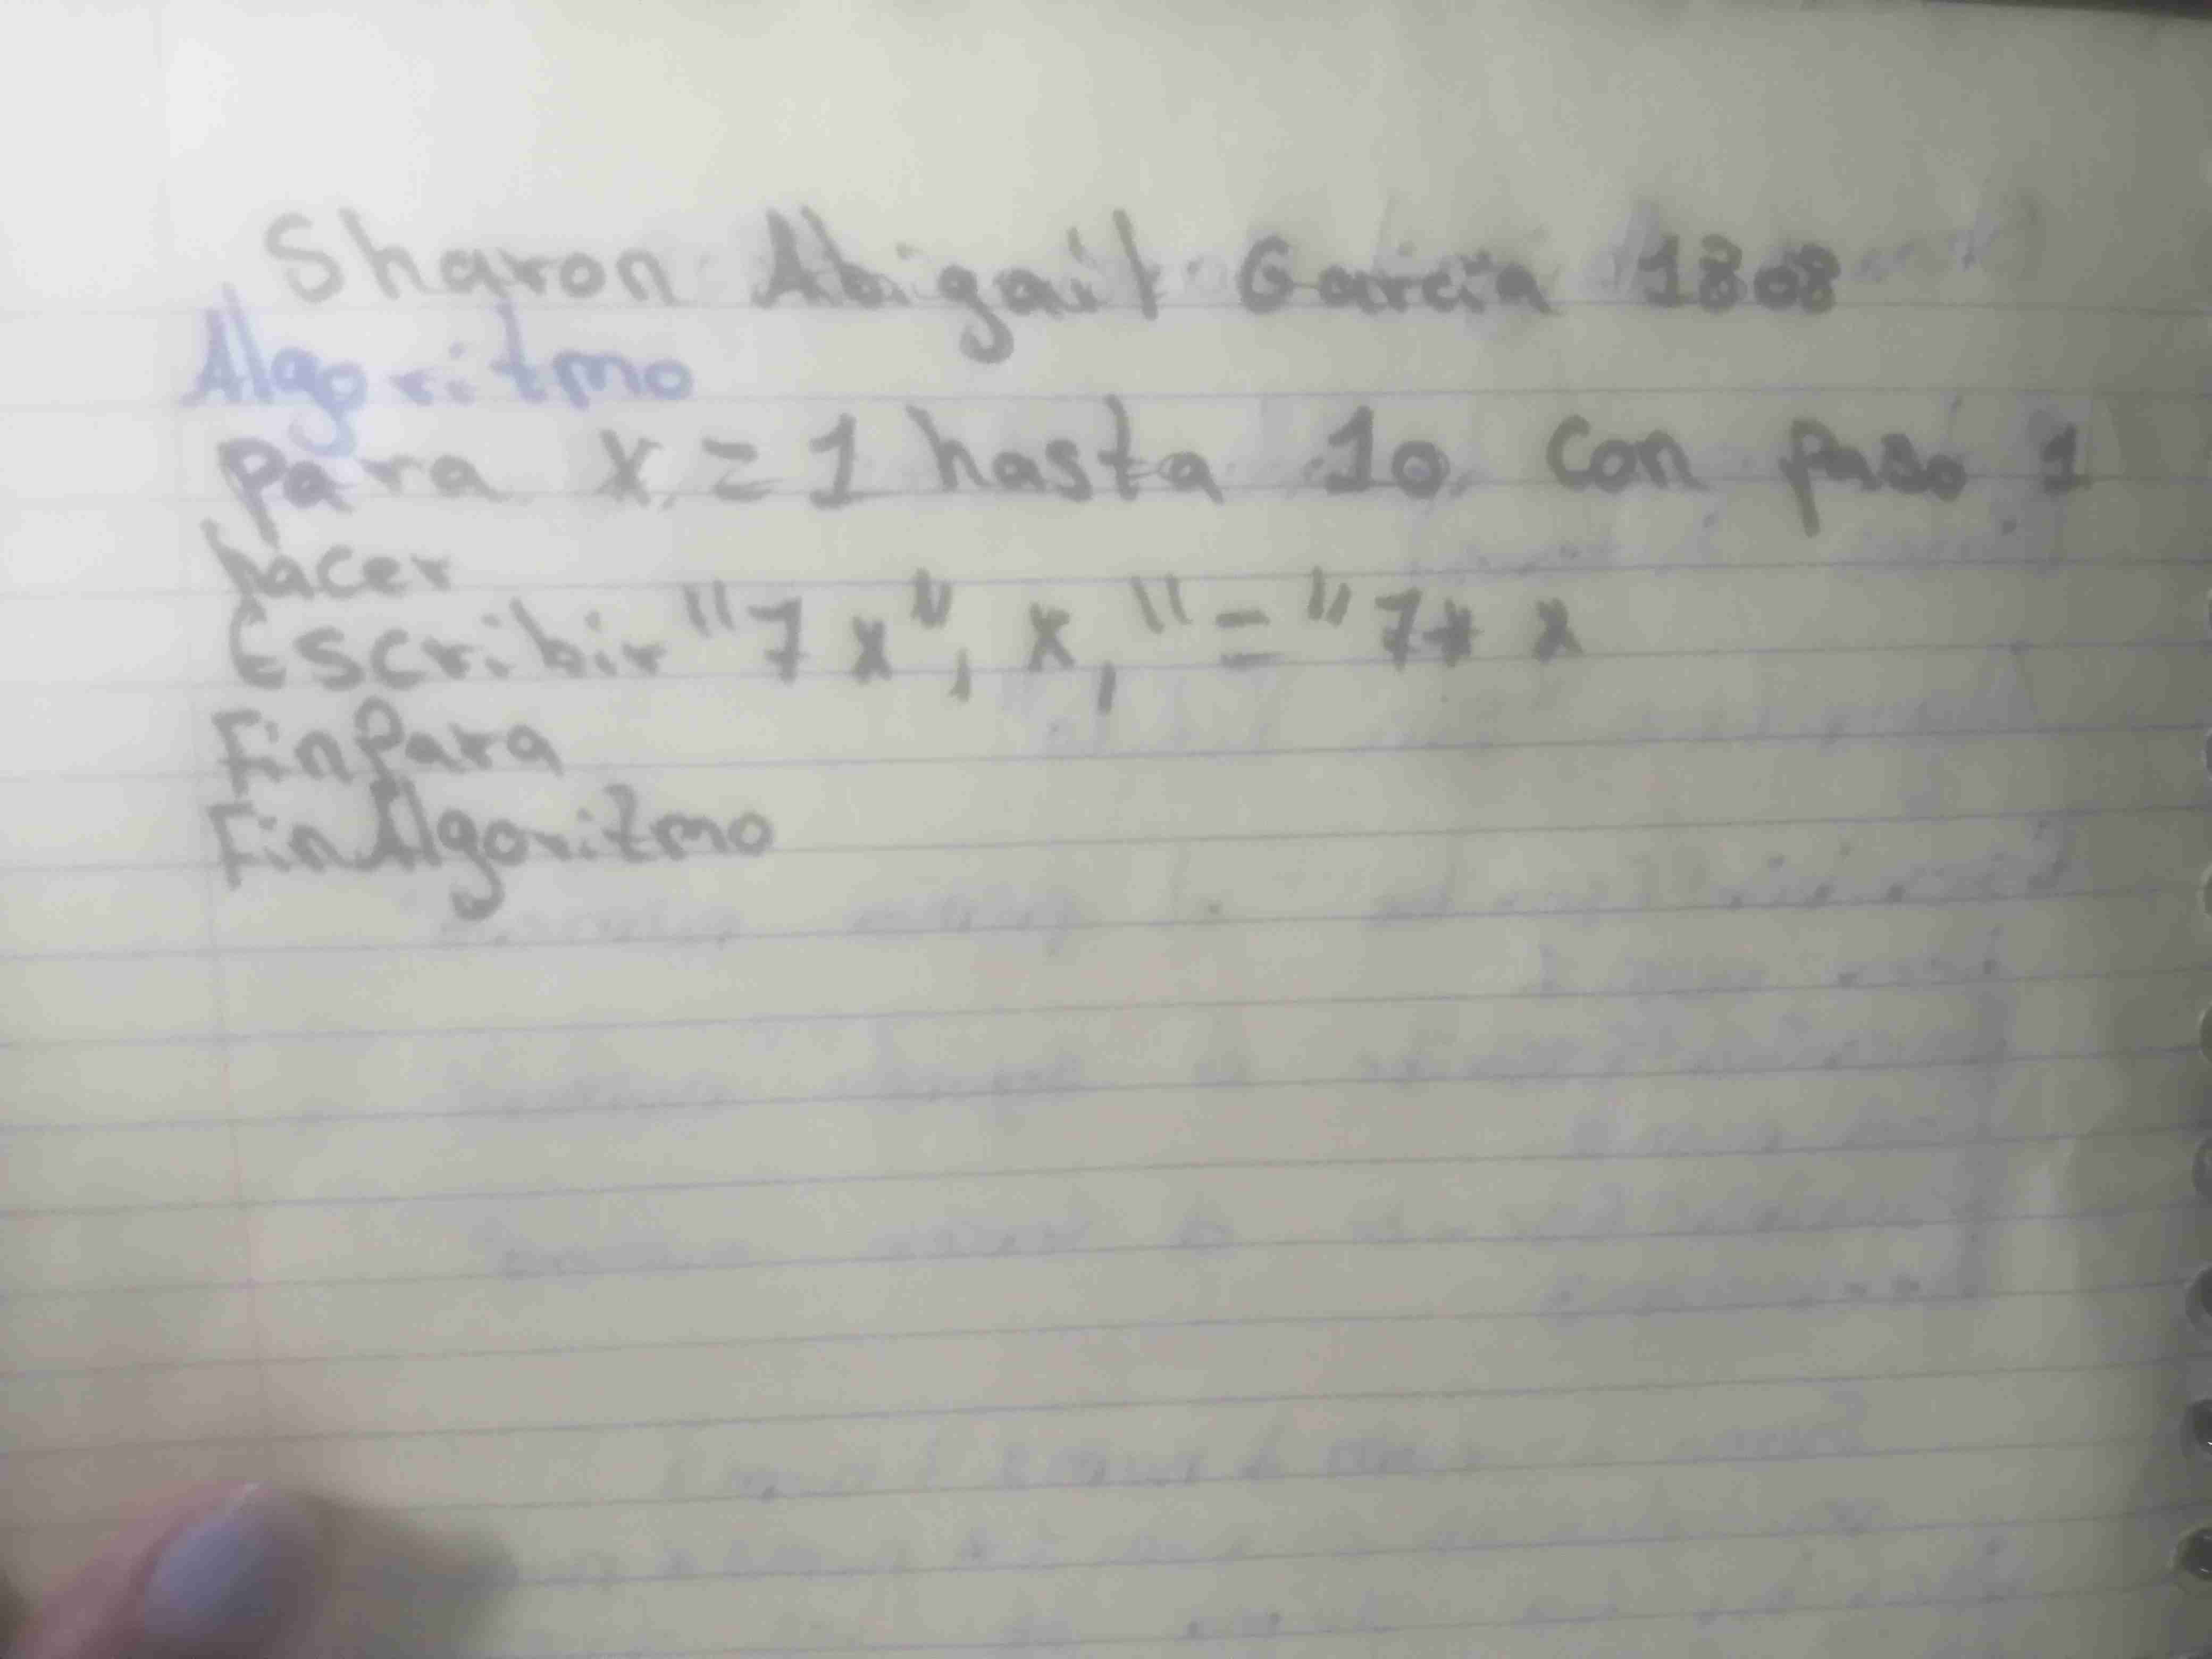 Sharon Abigail García 1808
Algoritmo
para x = 1 hasta 10 con paso 1
hacer
Escribir "7 x", x, "=" 7* x
FinPara
FinAlgoritmo